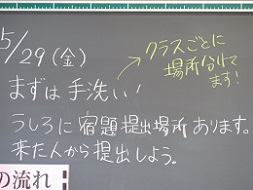 5/29(金)
クラスごとに
場所分けて
ます!
まずは 手洗い!
うしろに 宿題提出場所 あります。
来た人から 提出しよう。
の流れ